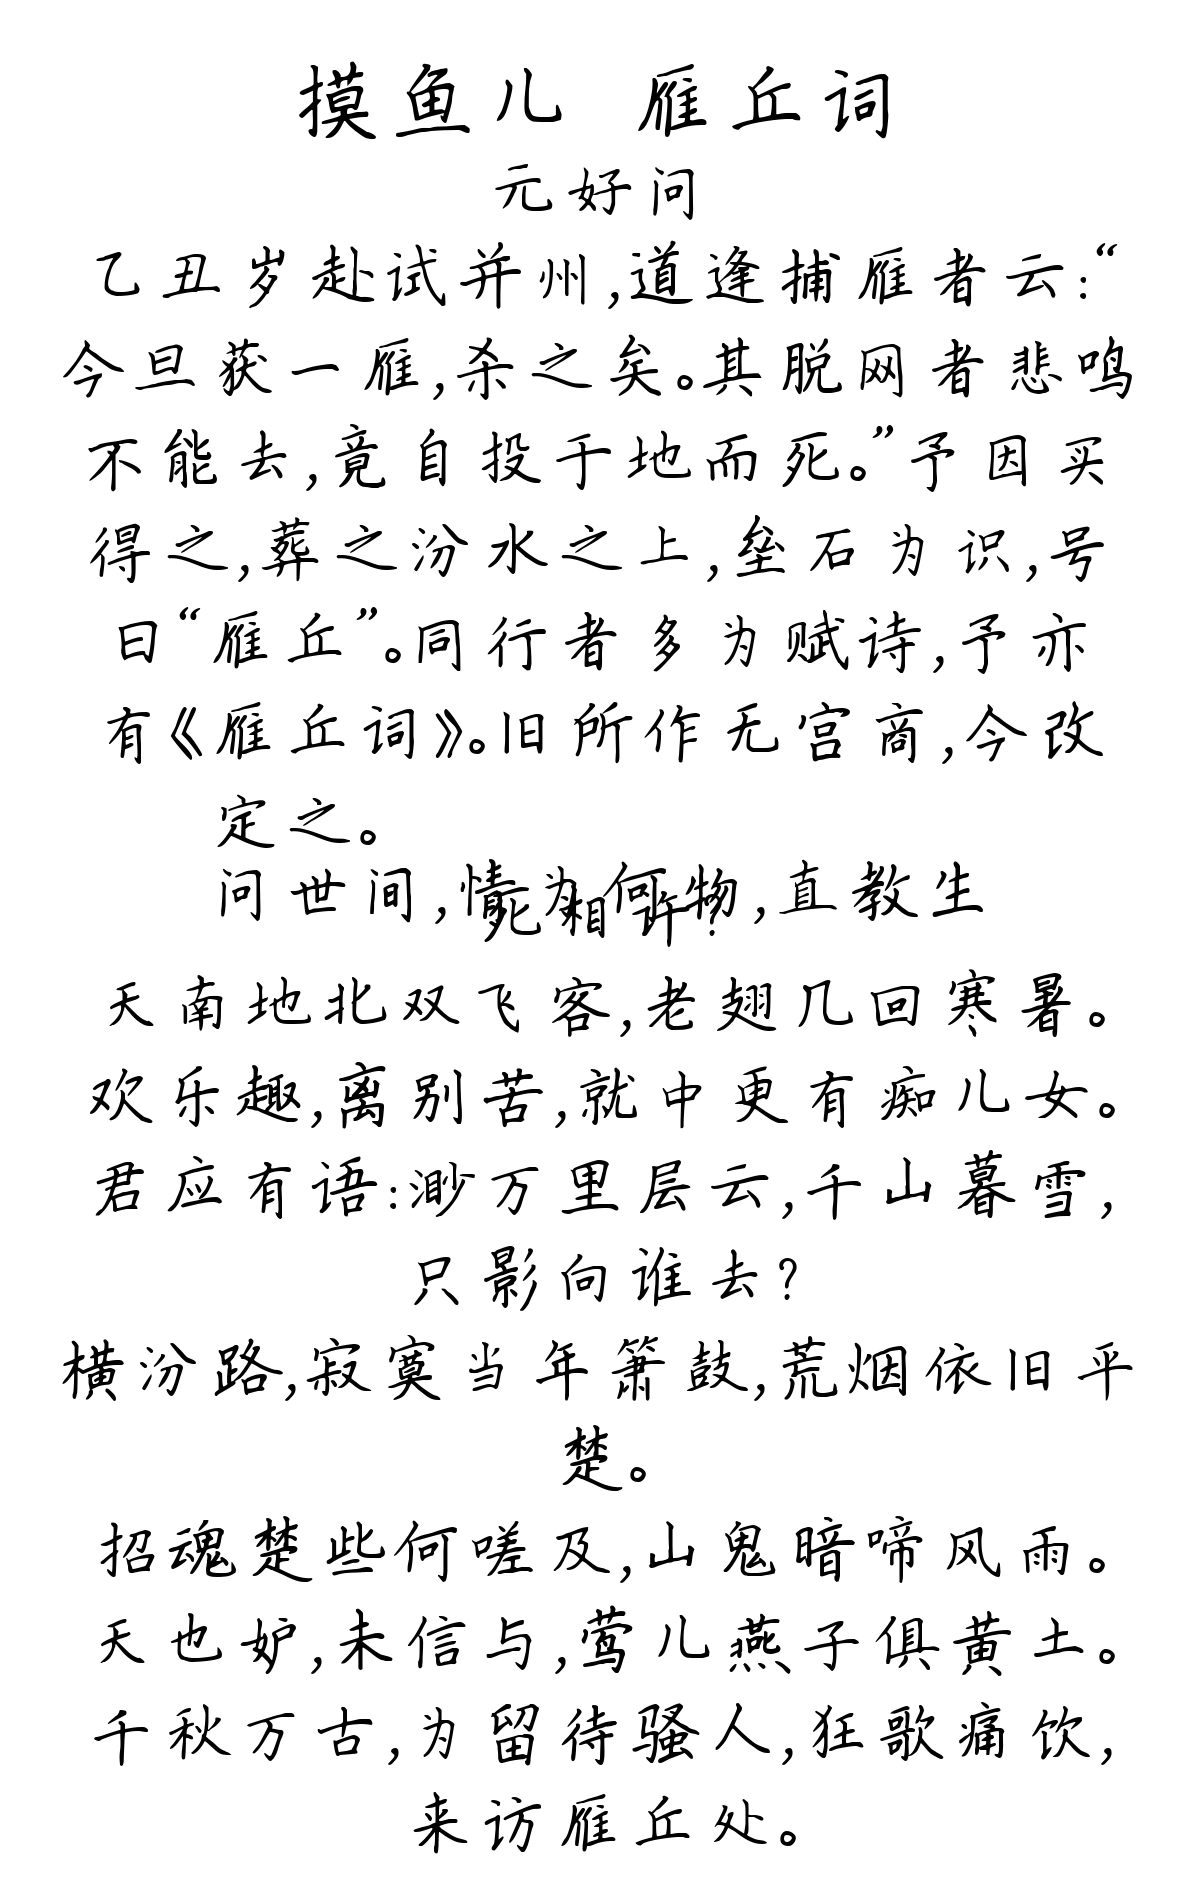 摸鱼儿 雁丘词
元好问
乙丑岁赴试并州,道逢捕雁者云:“
今旦获一雁,杀之矣。其脱网者悲鸣
不能去,竟自投于地而死。”予因买
得之,葬之汾水之上,垒石为识,号
曰“雁丘”。同行者多为赋诗,予亦
有《雁丘词》。旧所作无宫商,今改
定之。
问世间,情为何物,直教生
死相许?
天南地北双飞客,老翅几回寒暑。
欢乐趣,离别苦,就中更有痴儿女。
君应有语:渺万里层云,千山暮雪,
只影向谁去?
横汾路,寂寞当年箫鼓,荒烟依旧平
楚。
招魂楚些何嗟及,山鬼暗啼风雨。
天也妒,未信与,莺儿燕子俱黄土。
千秋万古,为留待骚人,狂歌痛饮,
来访雁丘处。